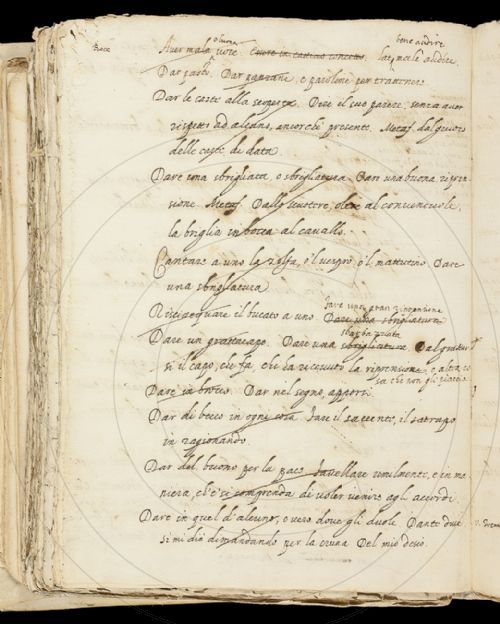 Aver mala voce. Essere in cattivo concetto
bene audire
Dar pasto. Dar panzane, e parolone per trattenere.
Dar le carte alla scoperta. Dire il suo parere senza aver
rispetto ad alcuno, ancorchè presente. Metaf. dal giuoco
delle carte di data.
Dare una sbrigliata, o sbrigliatura. Dare una buona ripren-
sione. Metaf. Dallo scuotere, oltre al convenevole,
la briglia in bocca al cavallo.
Cantare a uno la zolfa, o 'l vespro, o 'l mattutino. Dare
una sbrigliatura.
Risciacquare il bucato a uno. Dare una sbrigliatura
fare una gran riprensione
Dare un grattacapo. Dare una sbrigliatura. Dal grattar
sbarbazzata
si il capo, che fa, chi ha ricevuto la riprensione, o altra co
sa che non gli piaccia
Dare in brocco. Dar nel segno, apporsi.
Dar di becco in ogni cosa. Fare il saccente, il satrapo
in ragionando.
Dar del buono per la pace. Favellare umilmente, e in ma-
niera, ch'e' si comprenda di voler venire agli accordi.
Dare in quel d'alcuno, o vero dove gli duole. Dante disse
Sì mi diè dimandando per la cruna Del mio desio.